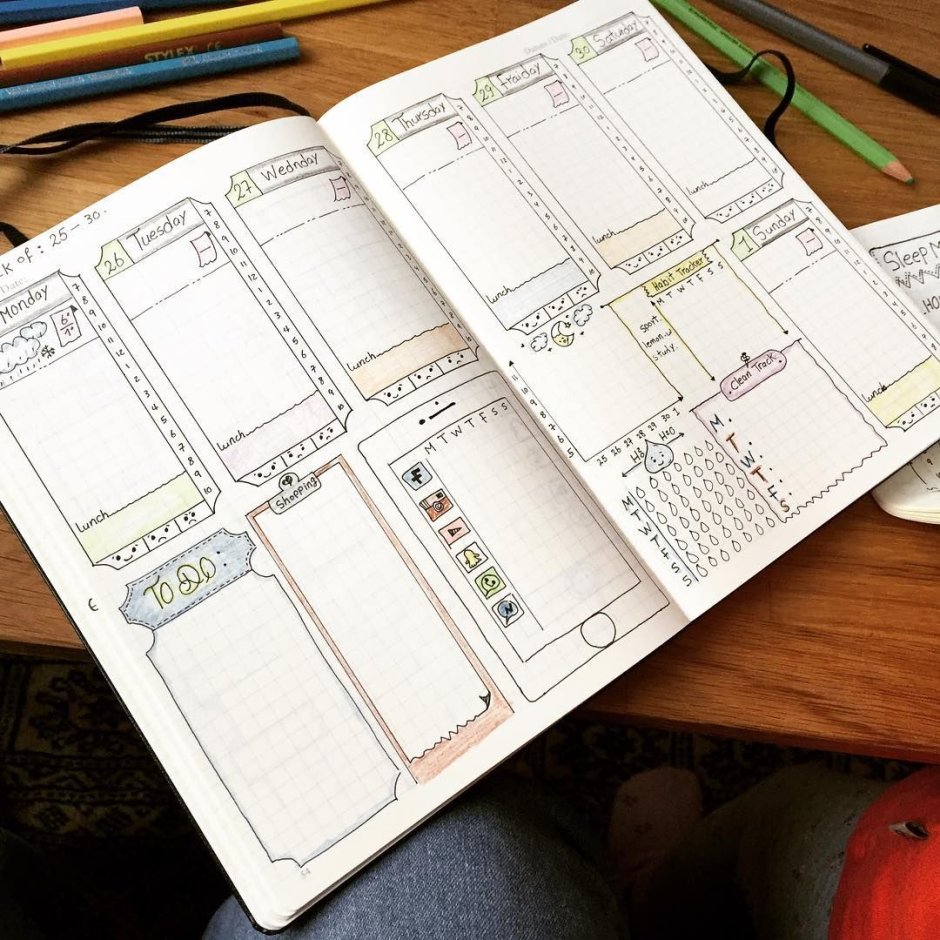 STYLEX
CK OF : 25 - 30.
Date:
Monday
6°
1°
lunch
26 Tuesday
lunch
27 Wednday
lunch
To Do :
Shopping
M T W T F S S
54
Dunum / Date:
28 Thursday
lunch
29 Fraiday
lunch
30 Saturday
lunch
1 Sunday
lunch
Habit Tracker
M T W T F S S
sport.
lemon.w
study.
25 26 27 28 29 30 1
Clean Track
M
T
W
T
F
S
H2O
M
T
W
T
F
S
S
Sleep M